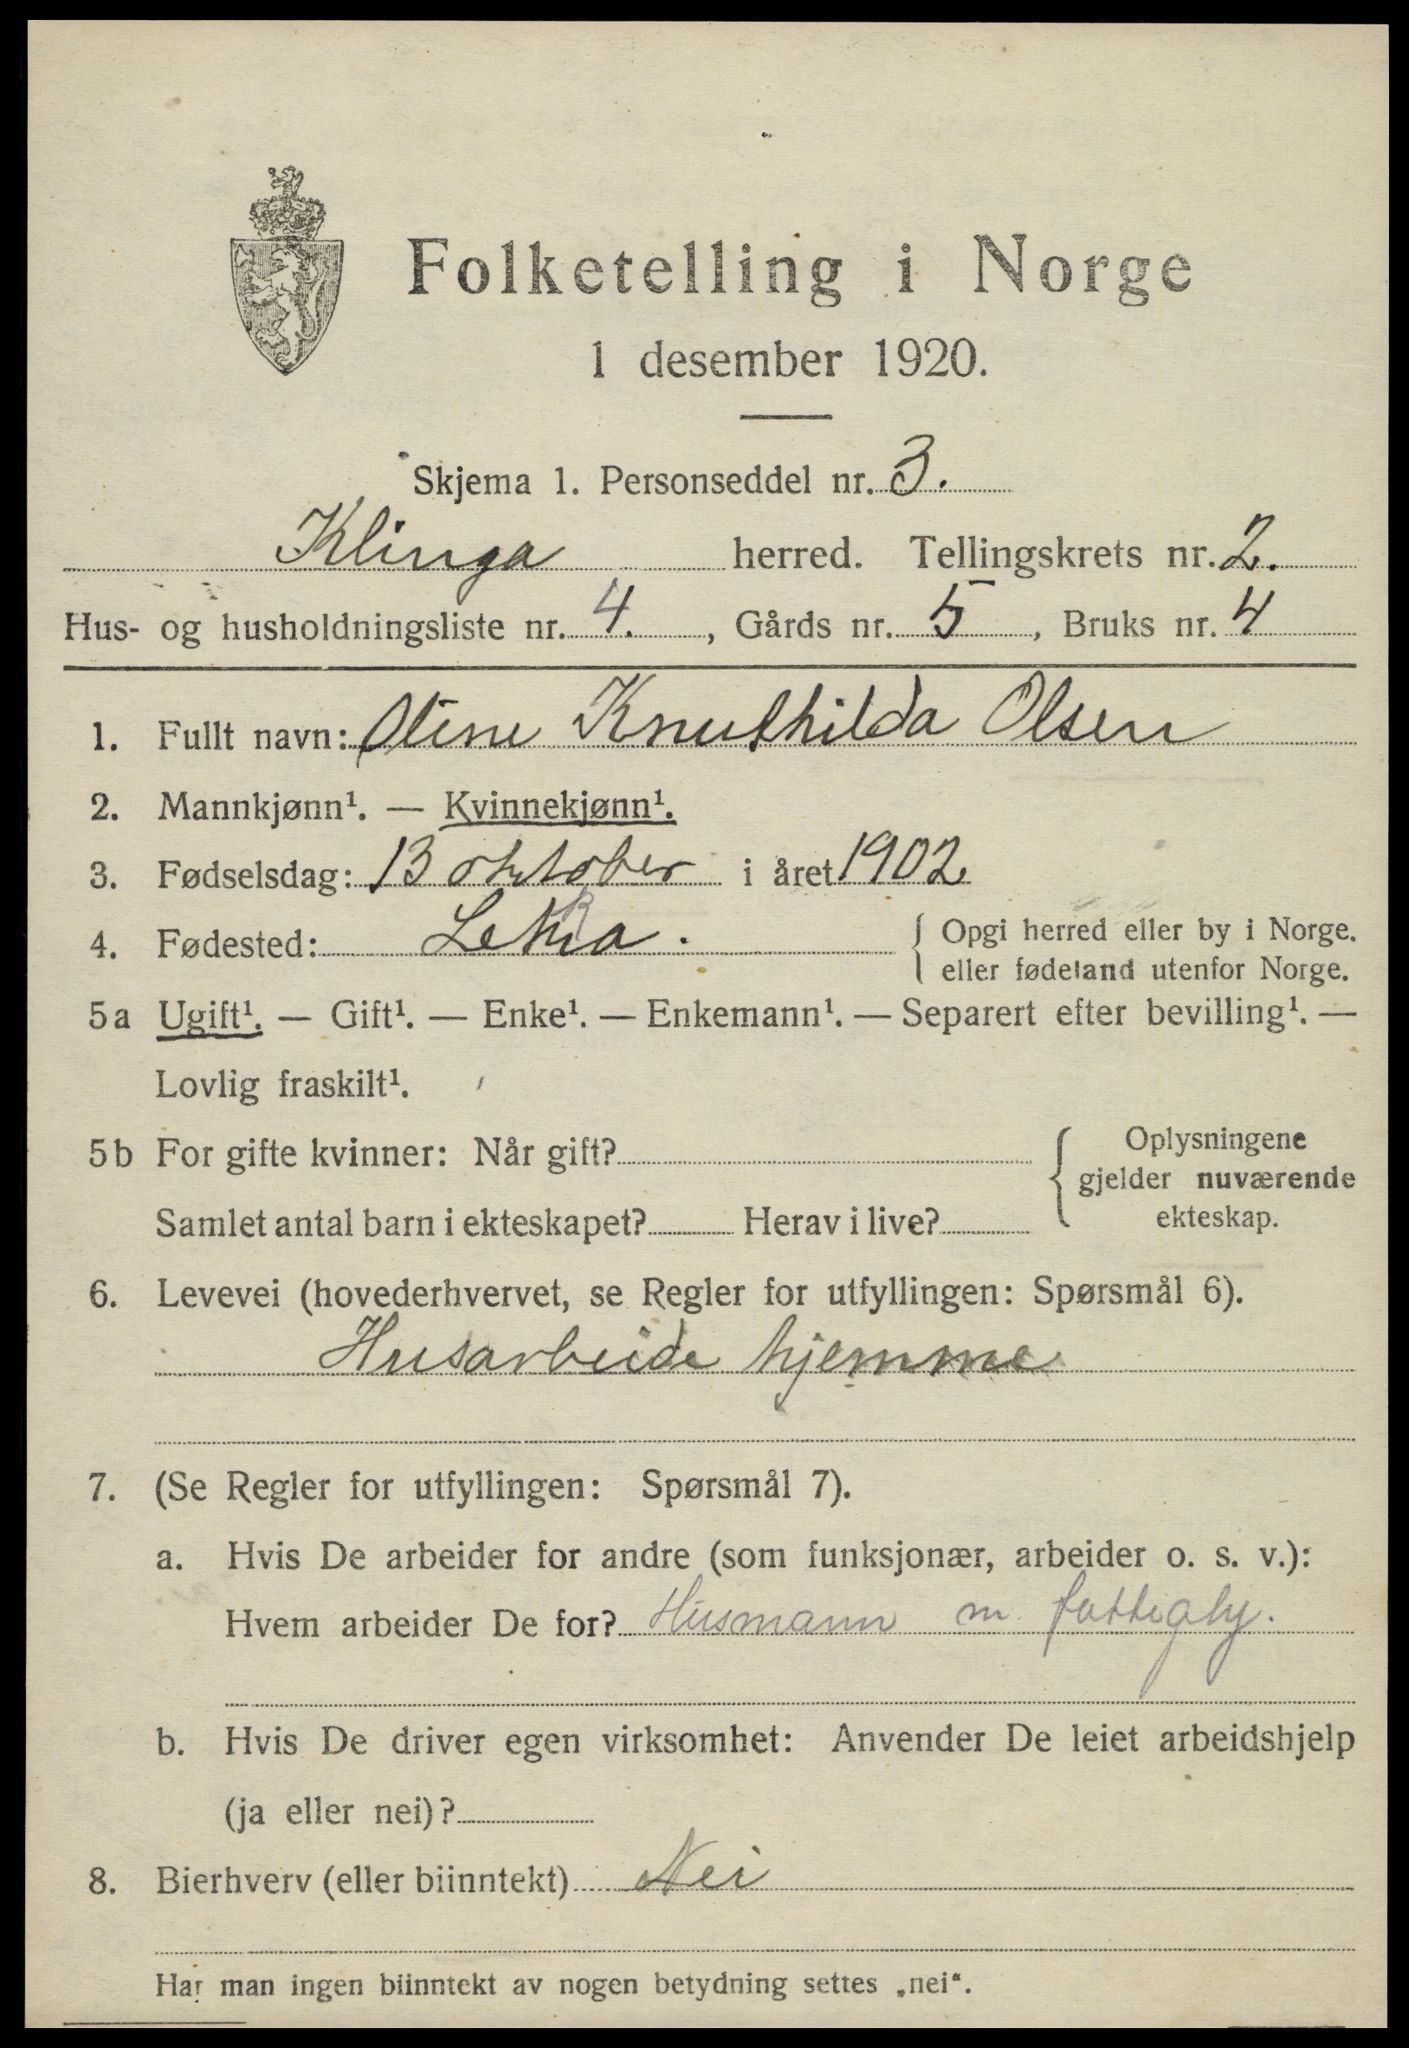 Folketelling i Norge
1 desember 1920.
Skjema 1. Personseddel nr. 3.
Klinga herred. Tellingskrets nr. 2.
Hus- og husholdningsliste nr. 4., Gårds nr. 5, Bruks nr. 4
1. Fullt navn: Oline Knuthilda Olsen
2. Mannkjønn¹. — Kvinnekjønn¹.
3. Fødselsdag: 13 oktober i året 1902
4. Fødested: Leka. { Opgi herred eller by i Norge.
eller fødeland utenfor Norge.
5a Ugift¹. — Gift¹. — Enke¹. — Enkemann¹. — Separert efter bevilling¹. —
Lovlig fraskilt¹.
5b For gifte kvinner: Når gift? { Oplysningene
gjelder nuværende
Samlet antal barn i ekteskapet? Herav i live? ekteskap.
6. Levevei (hovederhvervet, se Regler for utfyllingen: Spørsmål 6).
Husarbeide hjemme
7. (Se Regler for utfyllingen: Spørsmål 7).
a. Hvis De arbeider for andre (som funksjonær, arbeider o. s. v.):
Hvem arbeider De for? Husmann m
b. Hvis De driver egen virksomhet: Anvender De leiet arbeidshjelp
(ja eller nei)?
8. Bierhverv (eller biinntekt) Nei
Har man ingen biinntekt av nogen betydning settes „nei“.